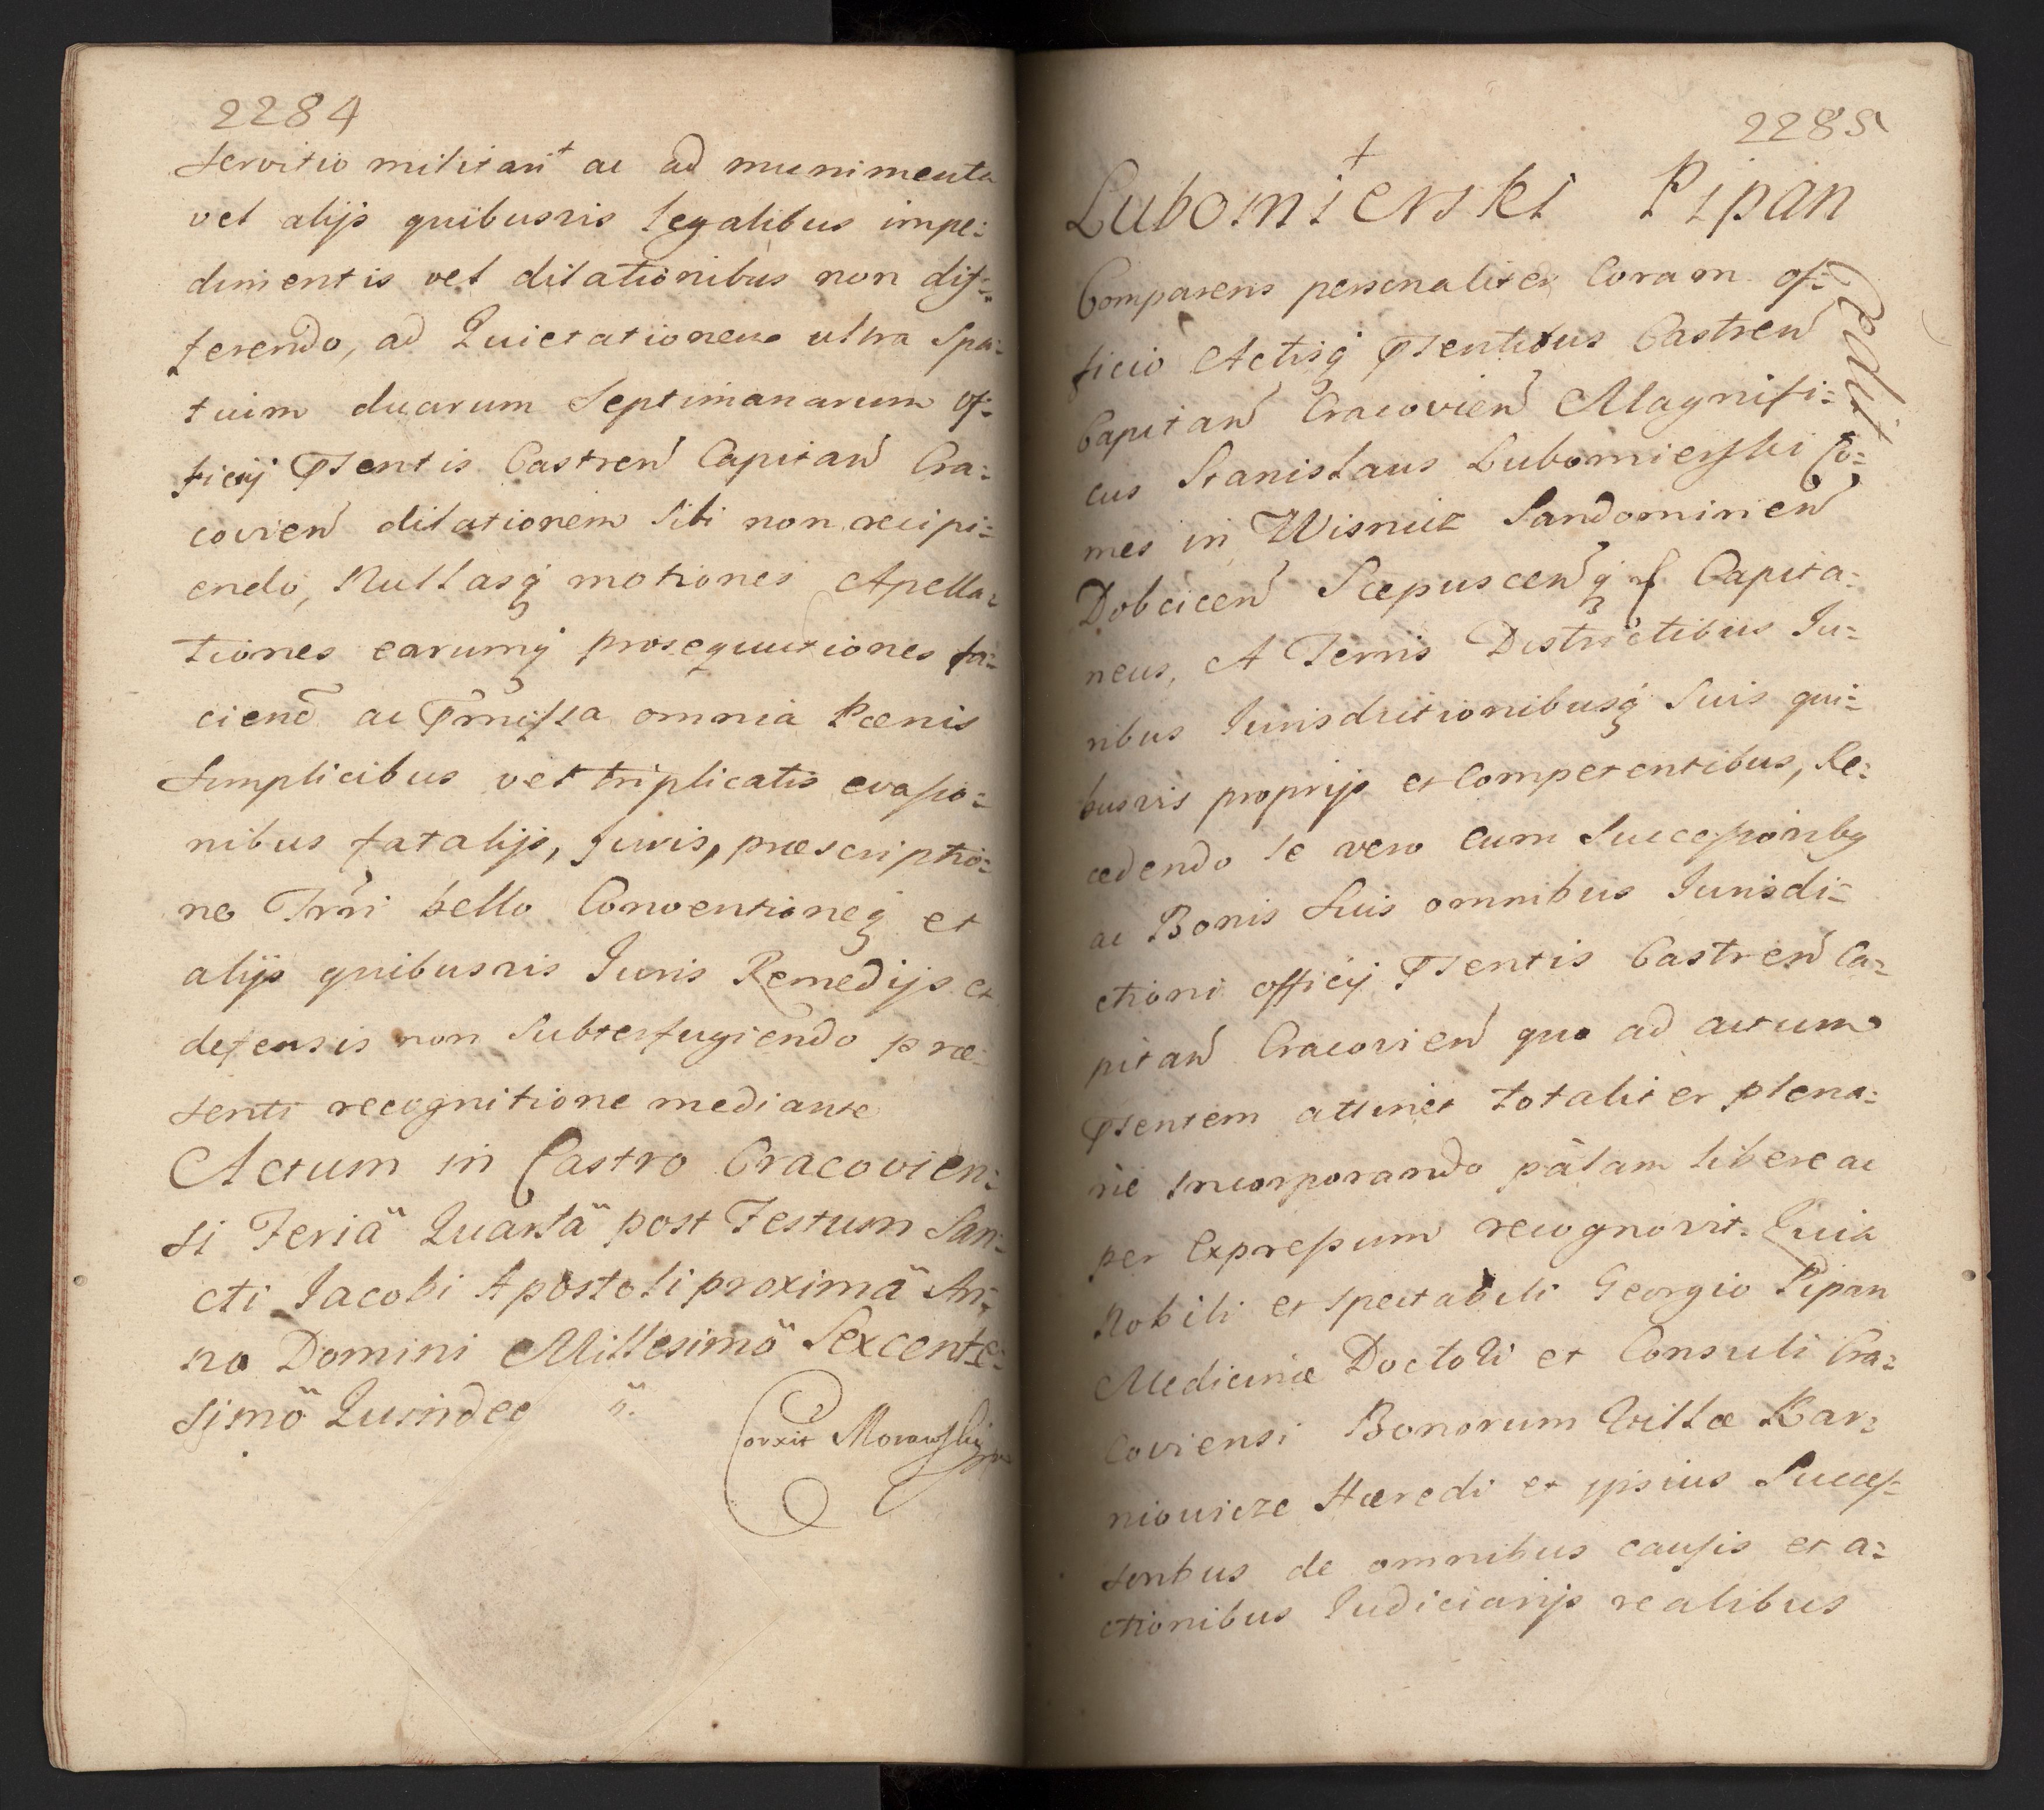 2284
servitio militari + ac ad munimenta
vel alijs quibusvis legalibus impe:
dimentis vel dilationibus non dif:
ferendo, ad Quietationem ultra Spa:
tium duarum Septimanarum of:
ficij Pntis Castren Capitan Cra:
covien dilationem Sibi non recipi:
endo, Nullasq motiones Apella:
tiones earumq prosequutiones fa:
ciend ac Pmissa omnia Pœnis
Simplicibus vel triplicatis evasio:
nibus fatalijs, Juris, præscriptio:
ne Trri bello Conventioneq et
alijs quibusvis Juris Remedijs et
defensis non Subterfugiendo præ:
senti recognitione mediante
Actum in Castro Cracovien:
si Feriä Quartä post Festum San:
cti Jacobi Apostoli proximä An:
no Domini Millesimö Sexcente:
simö Quindec
Corxit Morawski
2285
+
Lubomierski Pipan
Cedit
Comparens personaliter Coram of:
ficio Actisq Pntibus Castren
Capitan Cracovien Magnifi:
cus Stanislaus Lubomierski Co:
mes in Wisnicz Sandomirien
Dobcicen Scepuscenq Capita:
neus, A Terris Districtibus Ju:
ribus Jurisdictionibusq Suis qui:
busvis proprijs et Competentibus, Re:
cedendo Se vero cum Successoribq
ac Bonis Suis omnibus Jurisdi:
ctioni officij Pntis Castren Ca:
pitan Cracovien quo ad actum
Pntem attinet totaliter plena:
rie Incorporando pàlam libere ac
per Expressum recognovit. Quia
Nobili et Spectabili Georgio Pipan
Medicinæ Doctori et Consuli Cra:
coviensi Bonorum Villæ Kar:
niowicze Hæredi et ipsius Succes:
soribus de omnibus causis et a:
ctionibus Judiciarijs realibus